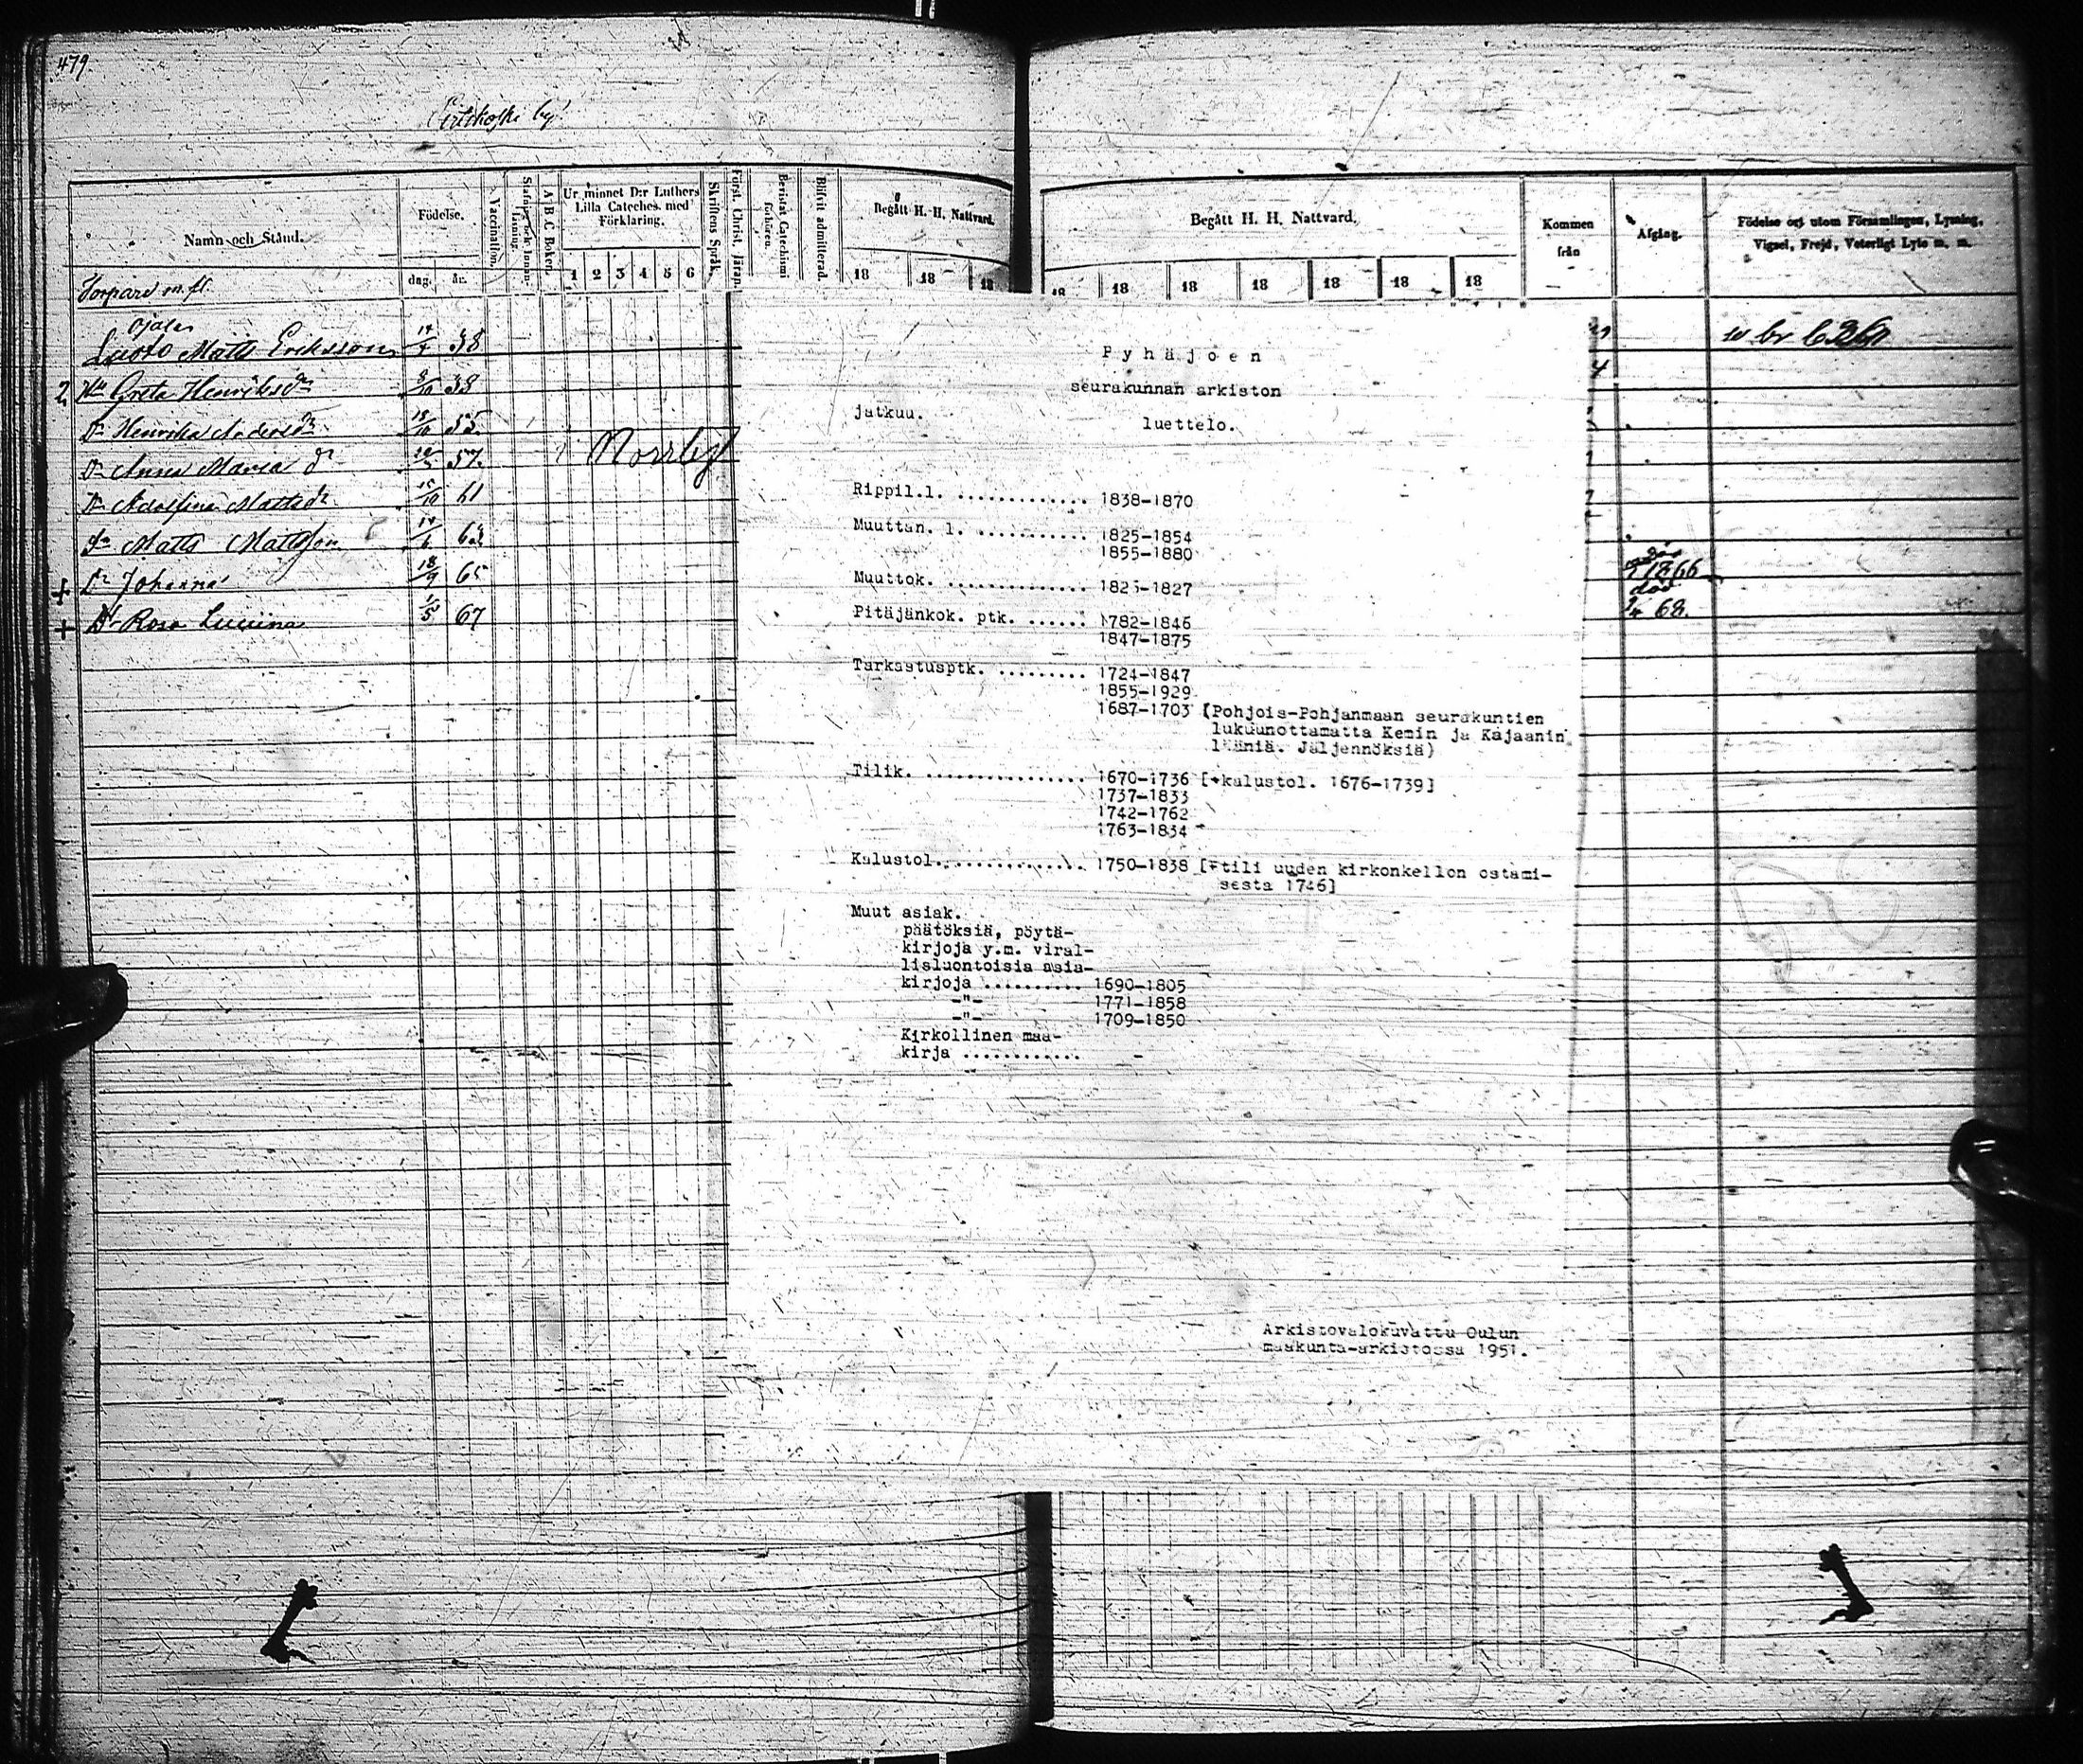 479.
by
Namn och Stånd.
Födelse.
dag. år.
Vaccination.
A B C Boken.
Ur minnet D:r Luthers
Lilla Cateches. med
Förklaring.
1 2 3 4 5 6
Skriftens Språk.
Först. Christ. Järap.
Bevistat Catechismi
förhören.
Blifvit admitterad.
Begått H. H. Nattvard.
18 18 18
Begått H. H. Nattvard.
18 18 18 18 18 18 18
Kommen
från
Afgång.
Födelse ort utom Församlingen, Lysning,
Vigsel, Frejd, Veterligt Lyte m. m.
Torpare m. fl.
Ojala
Luoto Matts Eriksson 38
2 Hu Greta Henriksdr 38
Dr Henrika Andersdr 55
Dr Anna Maria dr 57. Norrby
Dr Adolfina Mattsdr 15/10 61
Sn Matts Mattsson
+ Dr Johanna 18/9 65 död 1866
+ Dr Rosa 1/5 67 död 68.
Pyhäjoen
seurakunnan arkiston
jatkuu.
luettelo.
Rippil.l. ............. 1838-1870
Muuttan. l. ........... 1825-1854
1855-1880
Muuttok. .............. 1825-1827
Pitäjänkok. ptk. ...... 1782-1846
1847-1875
Tarkastusptk. ......... 1724-1847
1855-1929
1687-1703 (Pohjois-Pohjanmaan seurakuntien
lukuunottamatta Kemin ja Kajaanin
lääniä. Jäljennöksiä)
Tilik. ................ 1670-1736 [+kalustol. 1676-1739]
1737-1833
1742-1762
1763-1834
Kalustol............... 1750-1838 [+tili uuden kirkonkellon ostami-
sesta 1746]
Muut asiak.
päätöksiä, pöytä-
kirjoja y.m. viral-
lisluontoisia asia-
kirjoja .......... 1690-1805
-"- 1771-1858
-"- 1709-1850
Kirkollinen maa-
kirja ............ -
Arkistovalokuvattu Oulun
maakunta-arkistossa 1951.